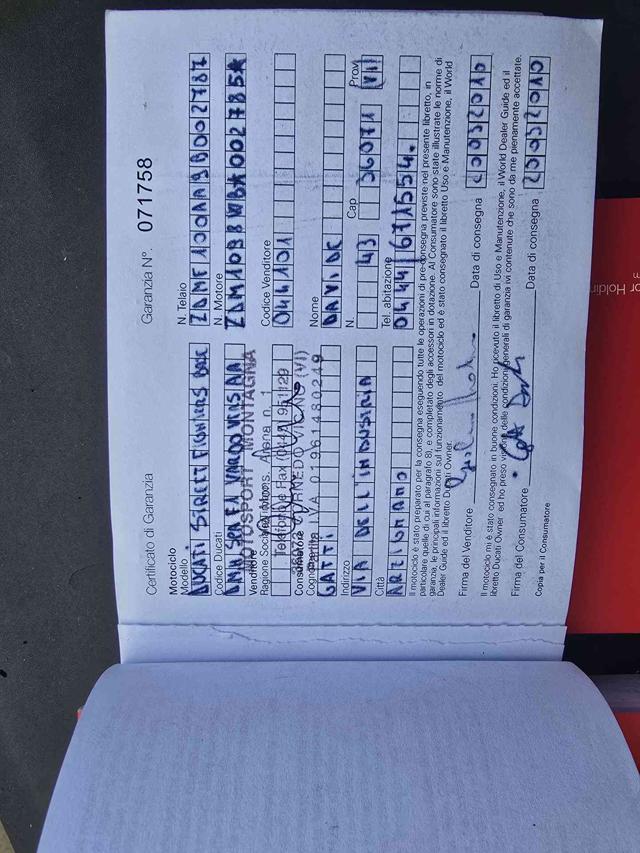 Certificato di Garanzia
Garanzia N°. 071758
Motociclo
Modello
DUCATI STREETFIGHTERS
N. Telaio
ZDMF100AA9B002787
Codice Ducati
N. Motore
ZDM1098
Venditore
Ragione Sociale
Codice Venditore
044101
MOTOSPORT MONTAGNA
Mons. Arena n. 1
Telefono e Fax (0444) 951129
CORNEDO VIC.NO (VI)
Partita IVA 01961480249
Consumatore
Cognome
GATTI
Nome
DAVIDE
Indirizzo
VIA DELL'INDUSTRIA
N.
43
Cap
36071
Prov
VI
Città
ARZIGNANO
Tel. abitazione
0444 671554.
Il motociclo è stato preparato per la consegna eseguendo tutte le operazioni di pre-consegna previste nel presente libretto, in
particolare quelle di cui al paragrafo 8), e completato degli accessori in dotazione. Al Consumatore sono state illustrate le norme di
garanzia, le principali informazioni sul funzionamento del motociclo ed è stato consegnato il libretto Uso e Manutenzione, il World
Dealer Guide ed il libretto Ducati Owner.
Firma del Venditore
Data di consegna
20032010
Il motociclo mi è stato consegnato in buone condizioni. Ho ricevuto il libretto di Uso e Manutenzione, il World Dealer Guide ed il
libretto Ducati Owner ed ho preso visione delle condizioni generali di garanzia ivi contenute che sono da me pienamente accettate.
Firma del Consumatore
Data di consegna
20032010
Copia per il Consumatore